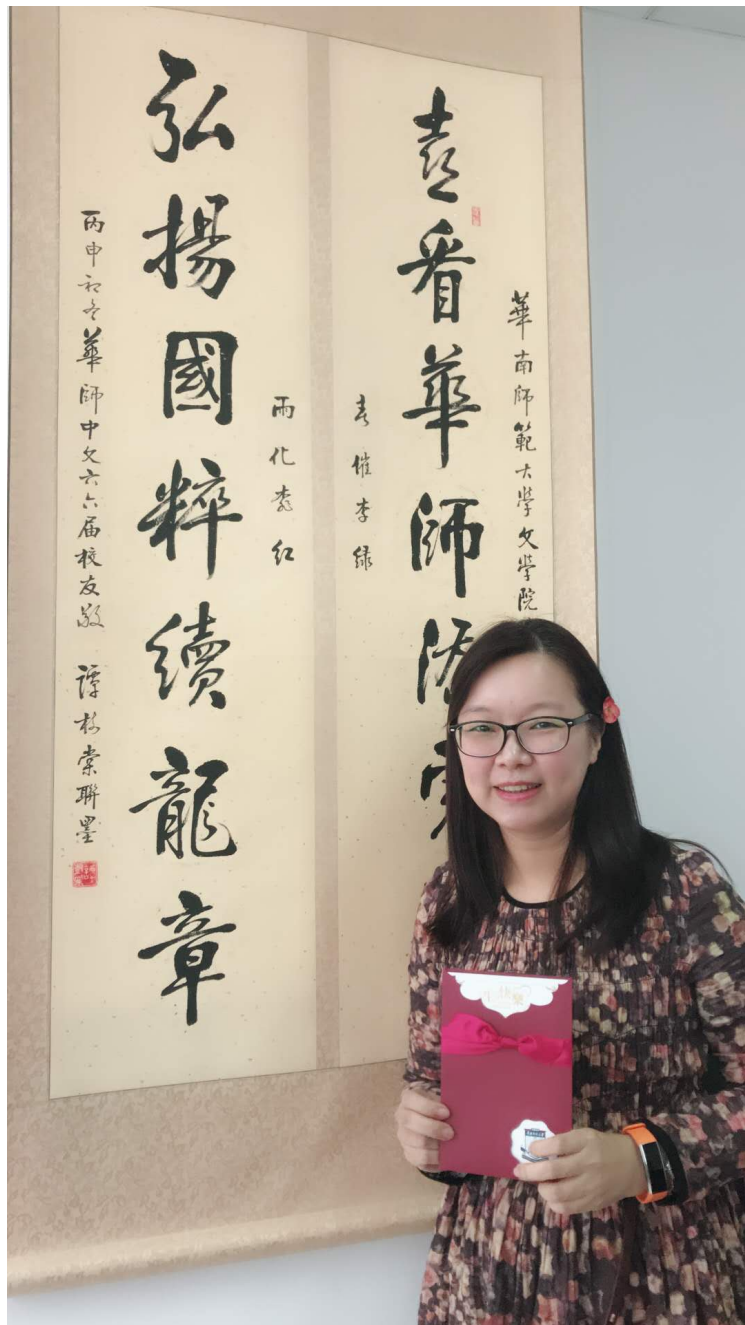 華南師範大學文學院
喜看華師添
春催李綠
雨化桃紅
弘揚國粹續龍章
丙申初冬華師中文六六届校友敬 譚棠聯墨
快樂